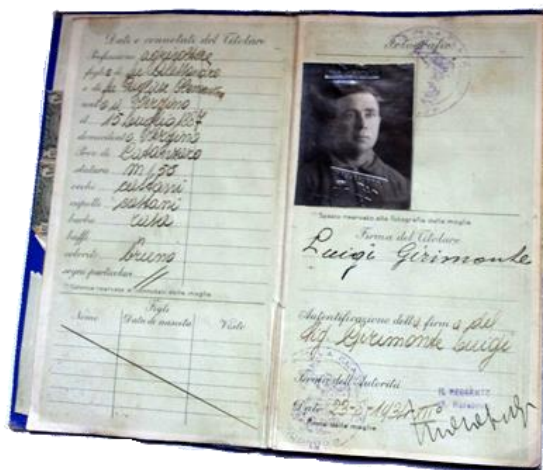 Dati e connotati del Titolare
Professione agricoltore
figlio di fu Alessandro
e di fu
nato a Verzino
il 15 Luglio
domiciliato Verzino
Prov. di Catanzaro
statura m 1,55
occhi castani
capelli castani
barba rasa
baffi
colorito bruno
segni particolari //
Figli
Nome Data di nascita Visto
Fotografia
Spazio riservato alla fotografia della moglie
Firma del Titolare
Luigi Girimonte
Autentificazione della firma del
Sig. Girimonte Luigi
Firma dell'Autorità
IL REGGENTE
Data
Firma della moglie